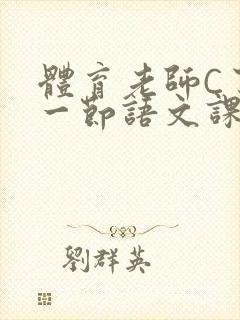 體育老師C
一節語文課
劉群英